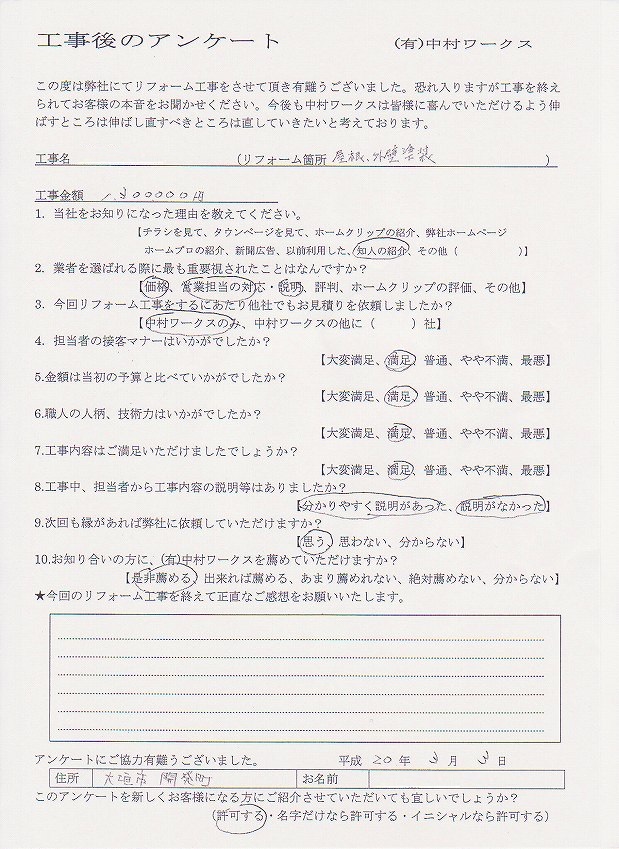 工事後のアンケート (有)中村ワークス
この度は弊社にてリフォーム工事をさせて頂き有難うございました。恐れ入りますが工事を終え
られてお客様の本音をお聞かせください。今後も中村ワークスは皆様に喜んでいただけるよう伸
ばすところは伸ばし直すべきところは直していきたいと考えております。
工事名 (リフォーム箇所 屋根、外壁塗装 )
工事金額 1,300000円
1. 当社をお知りになった理由を教えてください。
【チラシを見て、タウンページを見て、ホームクリップの紹介、弊社ホームページ
ホームプロの紹介、新聞広告、以前利用した、知人の紹介、その他( )】
2. 業者を選ばれる際に最も重要視されたことはなんですか?
【価格、営業担当の対応・説明、評判、ホームクリップの評価、その他】
3. 今回リフォーム工事をするにあたり他社でもお見積りを依頼しましたか?
【中村ワークスのみ、中村ワークスの他に( )社】
4. 担当者の接客マナーはいかがでしたか?
【大変満足、満足、普通、やや不満、最悪】
5.金額は当初の予算と比べていかがでしたか?
【大変満足、満足、普通、やや不満、最悪】
6.職人の人柄、技術力はいかがでしたか?
【大変満足、満足、普通、やや不満、最悪】
7.工事内容はご満足いただけましたでしょうか?
【大変満足、満足、普通、やや不満、最悪】
8.工事中、担当者から工事内容の説明等はありましたか?
【分かりやすく説明があった、説明がなかった】
9.次回も縁があれば弊社に依頼していただけますか?
【思う、思わない、分からない】
10.お知り合いの方に、(有)中村ワークスを薦めていただけますか?
【是非薦める、出来れば薦める、あまり薦めれない、絶対薦めない、分からない】
★今回のリフォーム工事を終えて正直なご感想をお願いいたします。
アンケートにご協力有難うございました。 平成 20 年 3 月 3 日
住所 大垣市 開発町 お名前
このアンケートを新しくお客様になる方にご紹介させていただいても宜しいでしょうか?
(許可する・名字だけなら許可する・イニシャルなら許可する)